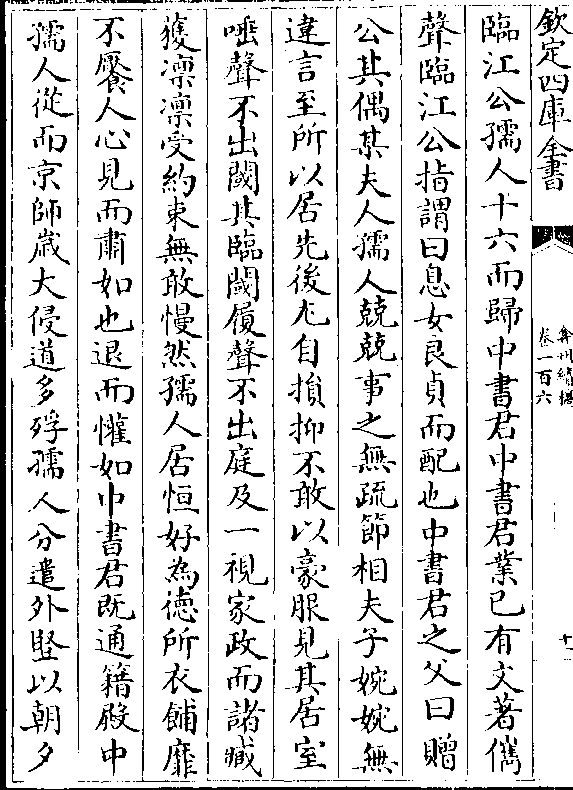 欽定四庫全書
弇州續稿
卷一百六
臨江公孺人十六而歸中書君中書君業已有文著儁
聲臨江公指謂曰息女良貞而配也中書君之父曰贈
公其偶某夫人孺人兢兢事之無疏節相夫子婉婉無
違言至所以居先後尤自損抑不敢以豪服見其居室
唾聲不出閾其臨閾履聲不出庭及一視家政而諸臧
獲凛凛受約束無敢慢然孺人居恒好為德所衣餔靡
不饜人心見而肅如也退而懽如中書君既通籍殿中
孺人從而京師嵗大侵道多殍孺人分遣外豎以朝夕